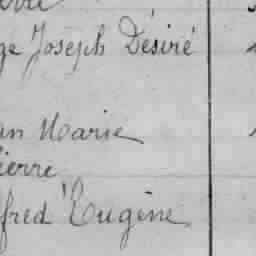 ge Joseph Désiré
an Marie
ierre
fred Eugène